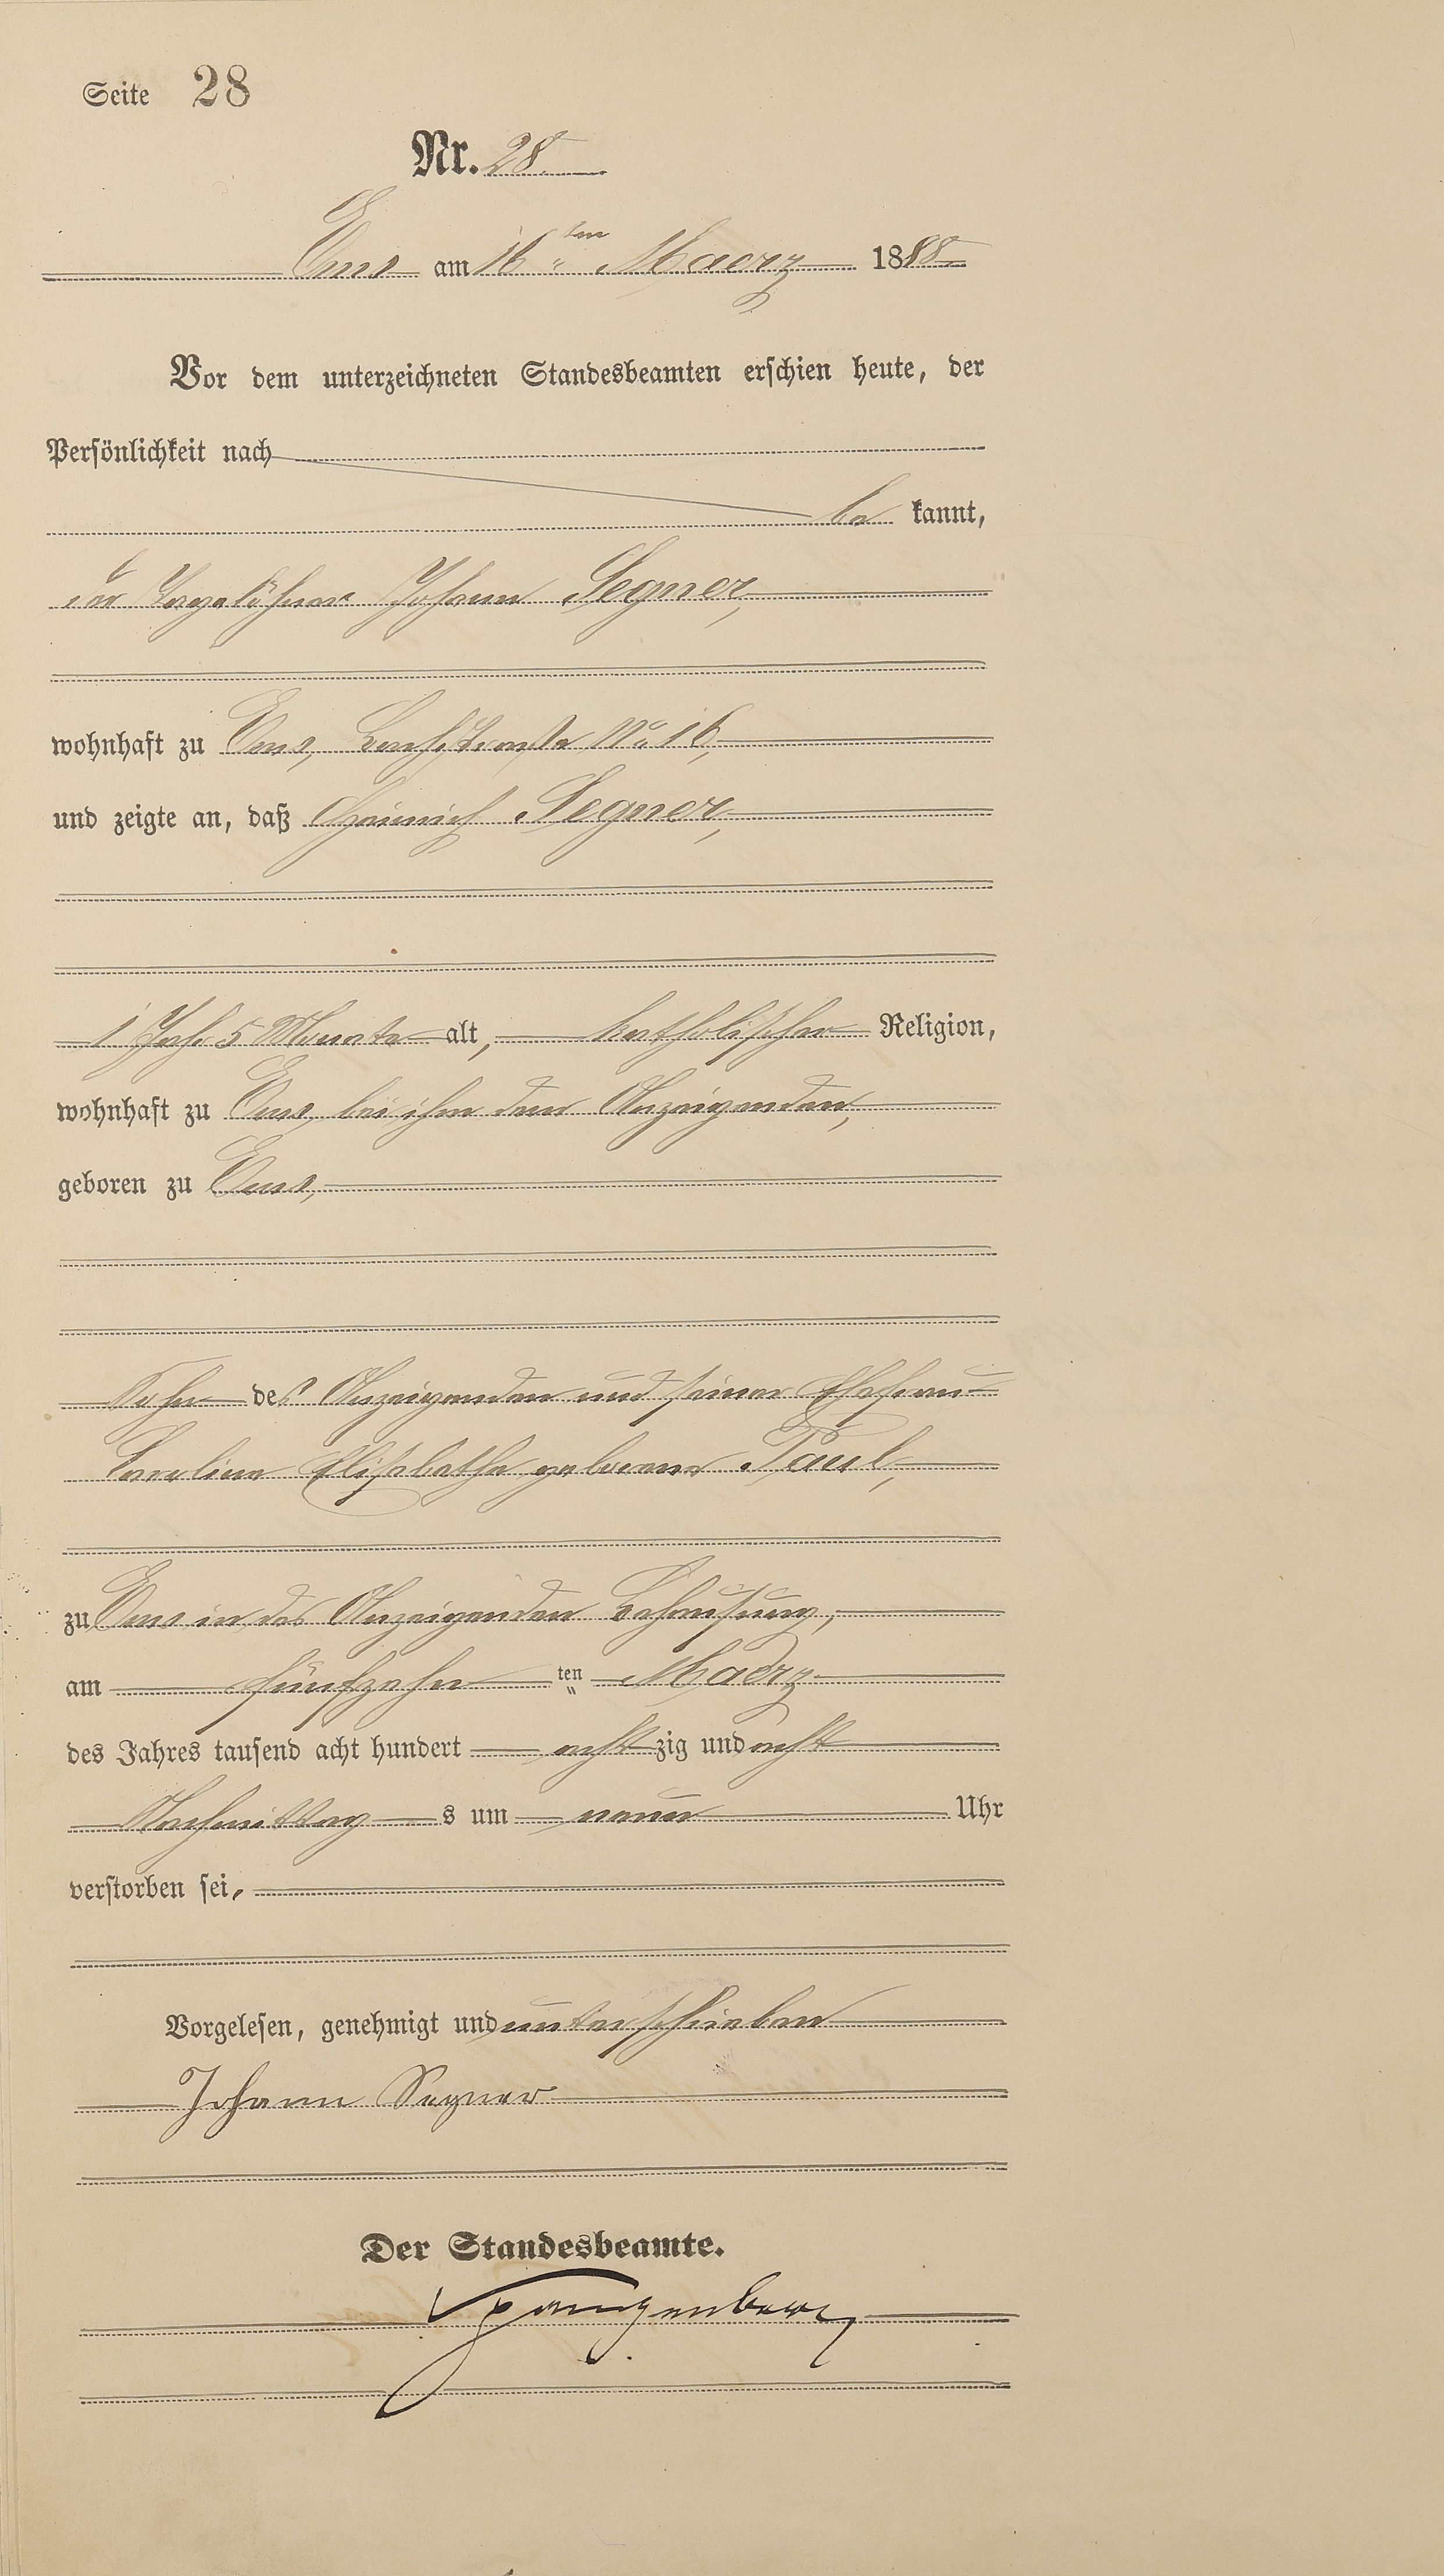 Seite 28
Nr. 28
Ems am 16ten Maerz 1888
Vor dem unterzeichneten Standesbeamten erschien heute, der
Persönlichkeit nach
be kannt,
der Tagelöhner Johann Segner,
wohnhaft zu Ems, Bachstraße No 16,
und zeigte an, daß Heinrich Segner,
1 Jahr 5 Monate alt, katholischer Religion,
wohnhaft zu Ems, bei ihm dem Anzeigenden,
geboren zu Ems,
Sohn des Anzeigenden und seiner Ehefrau
Caroline Elisabetha geborene Paul,
zu Ems in des Anzeigenden Behausung,
am fünfzehn ten Maerz
des Jahres tausend acht hundert acht zig und acht
Nachmittag s um neun Uhr
verstorben sei,
Vorgelesen, genehmigt und unterschrieben
Johann Segner
Der Standesbeamte.
Spangenberg